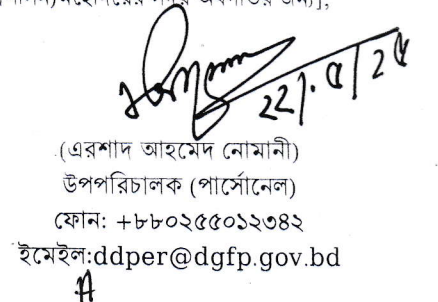 মহোদয়ের সদয় অবগতির জন্য)],
22/.5/25
(এরশাদ আহমেদ নোমানী)
উপপরিচালক (পার্সোনেল)
ফোন: +৮৮০২৫৫০১২৩৪২
ইমেইল:ddper@dgfp.gov.bd